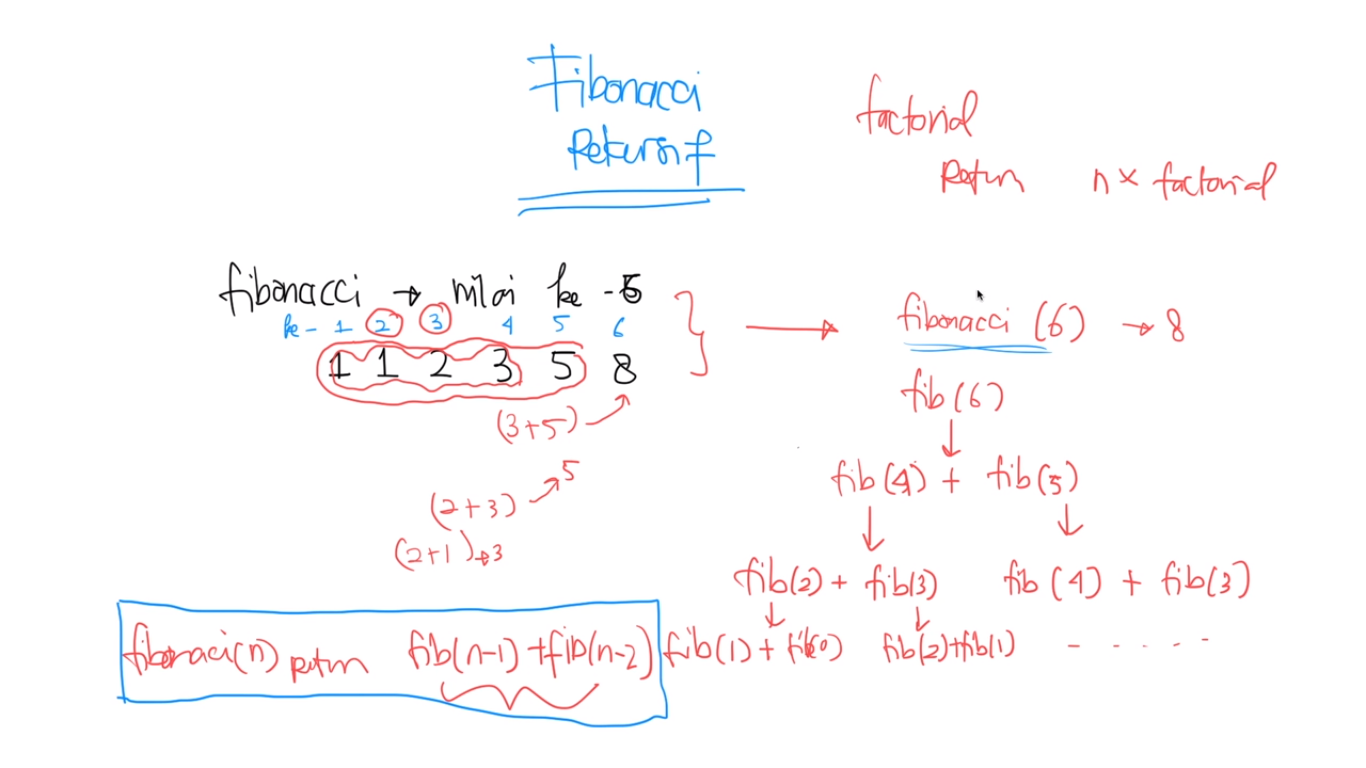 Fibonacci
Rekursif
factorial
Return n x factorial
fibonacci → nilai ke -6
ke - 1 2 3 4 5 6
1 1 2 3 5 8
(3+5)
(2+3) → 5
(2+1) → 3
fibonacci (6) → 8
fib (6)
fib(4) + fib(5)
fib(2) + fib(3) fib (4) + fib(3)
fib(1) + fib(0) fib(2)+fib(1) - . . . . -
fibonaci(n) return fib(n-1) + fib(n-2)